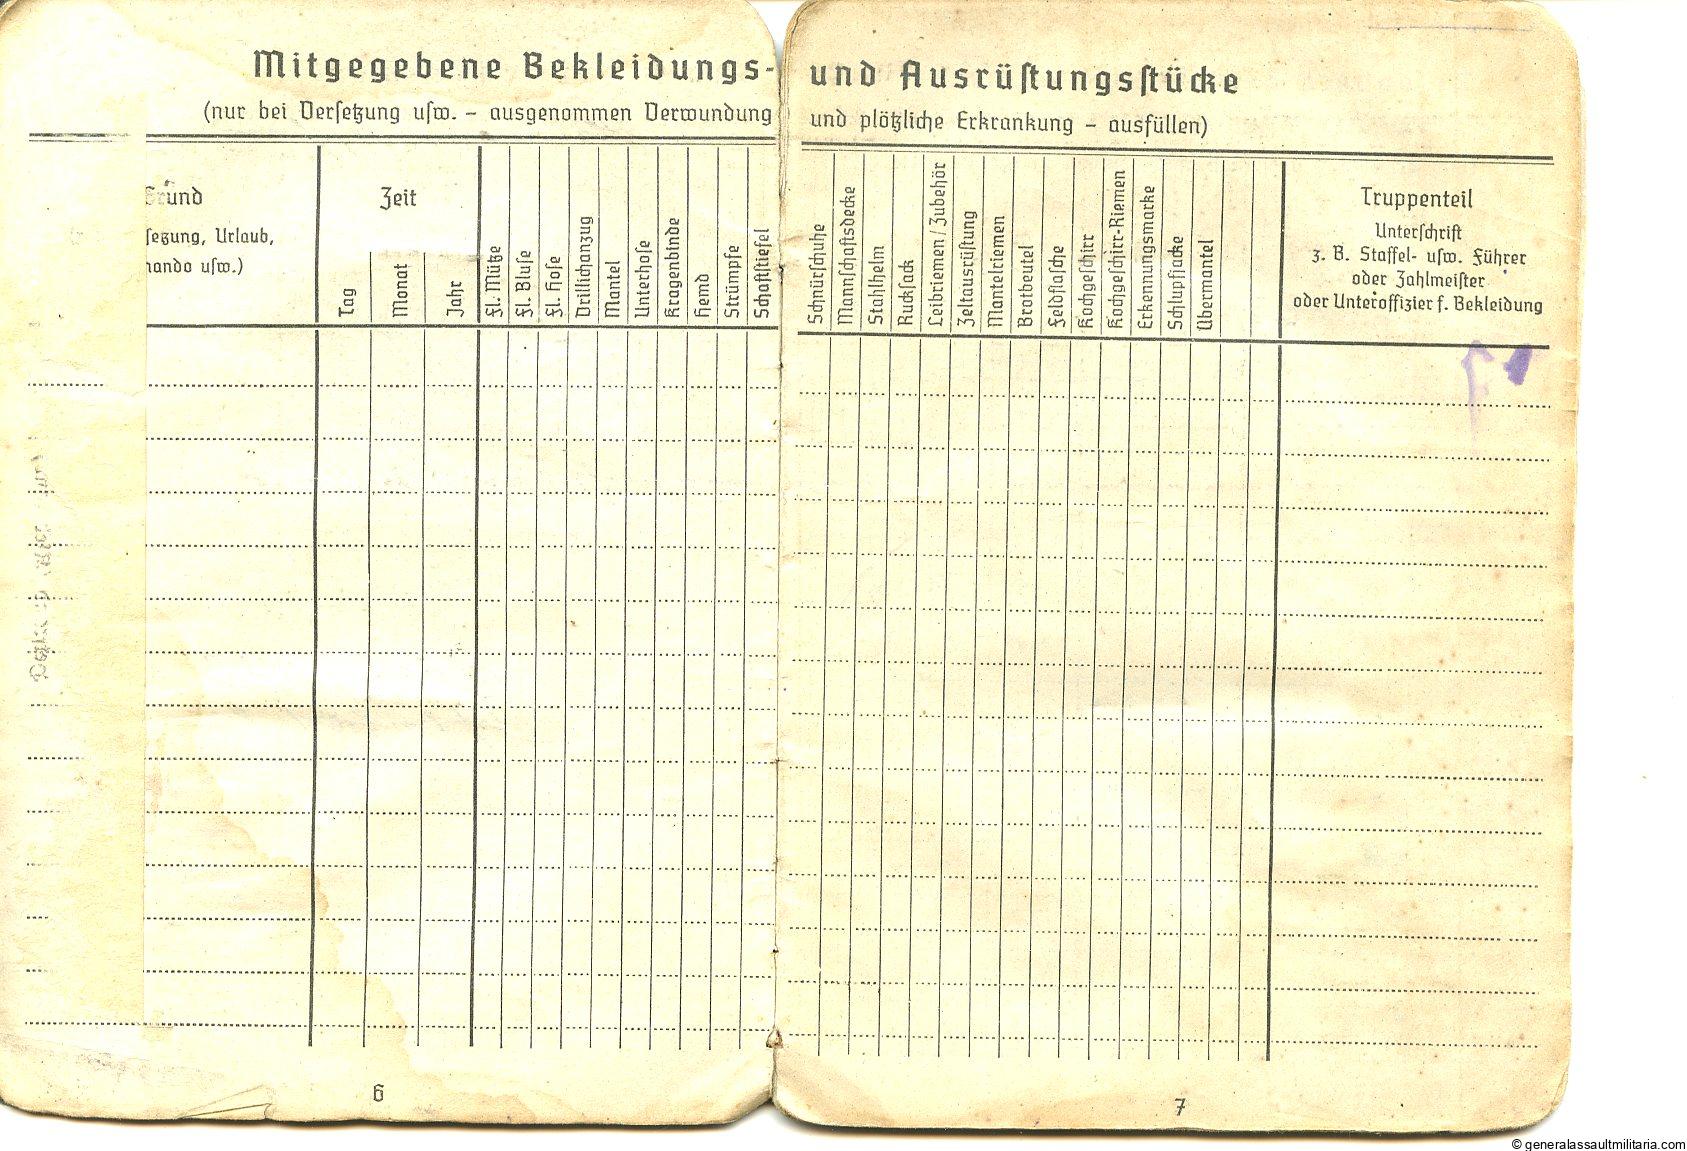 Mitgegebene Bekleidungs- und Ausrüstungsstücke
(nur bei Versetzung usw. – ausgenommen Verwundung und plötzliche Erkrankung – ausfüllen)
Grund
setzung, Urlaub,
mando usw.)
Zeit
Tag
Monat
Jahr
Fl. Mütze
Fl. Bluse
Fl. Hose
Drillichanzug
Mantel
Unterhose
Kragenbinde
Hemd
Strümpfe
Schaftstiefel
Schnürschuhe
Mannschaftsdecke
Stahlhelm
Rucksack
Leibriemen / Zubehör
Zeltausrüstung
Mantelriemen
Brotbeutel
Feldflasche
Kochgeschirr
Kochgeschirr-Riemen
Erkennungsmarke
Schlupfjacke
Übermantel
Truppenteil
Unterschrift
z. B. Staffel- usw. Führer
oder Zahlmeister
oder Unteroffizier f. Bekleidung
6
7
© generalassaultmilitaria.com